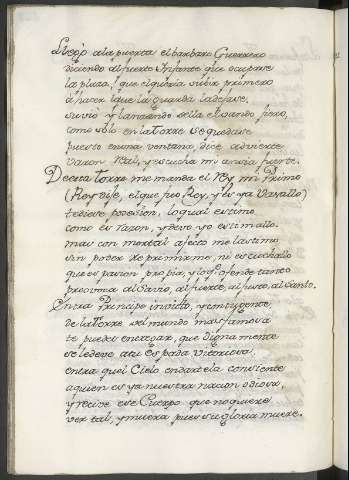 Llego a la puerta el barbaro Guerrero
diciendo al fuerte Infante que ocupase
la plaza, que el queria subir primero
a hacer que la guarda la dejase,
suvio y lanzando de ella el vando fiero,
como solo en la Torre se quedase
puesto en una ventana, dice advierte
varon Real, y escucha mi ansia fuerte.
De esta Torre me manda el Rey mi Primo
(Rey dije, el que fue Rey, y es ya Vasallo)
te de la posesion, lo qual estimo
como es razon, y devo yo estimallo.
mas con mortal afecto me lastimo
sin poder reprimirme, ni escuchallo
que es pasion propia, y lo que ofende tanto
provoca al Savio, al fuerte, al justo, al Santo.
Entra Principe invicto, y
de la Torre del mundo mas famosa
te puedes encargar, que dignamente
se le deve a tu Espada vitoriosa:
entra que el Cielo en dartela consiente
a quien es ya nuestra nacion odiosa,
y recive ese Cuerpo que no quiere
ver tal, y muera pues su gloria muere.